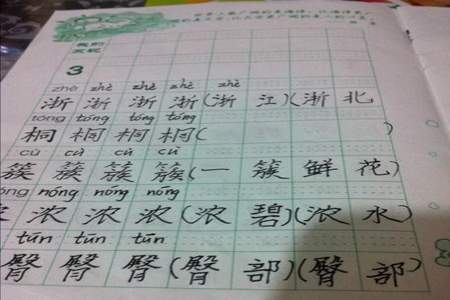 我的
发现
3
zhè zhè zhè zhè zhè
浙 浙 浙 浙(浙 江)(浙 北
tóng tóng tóng tóng
桐 桐 桐 桐( )
cù cù cù cù
簇 簇 簇 簇(一 簇 鲜 花)
ong nóng nóng nóng
浓 浓 浓(浓 碧)(浓 水)
tún tún tún
臀 臀 臀(臀 部)(臀 部)